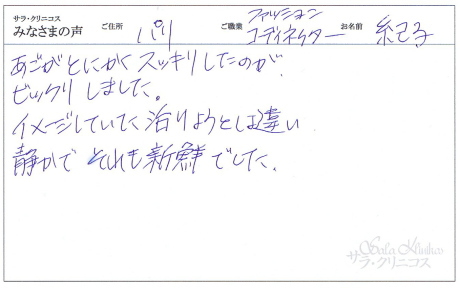 サラ・クリニコス
みなさまの声 ご住所 パリ ご職業 ファッションコーディネクター お名前 紀子
あごがとにかくスッキリしたのが、
ビックリしました。
イメージしていた治りょうとは違い
静かで それも新鮮でした。
Sala Klinikos
サラ・クリニコス